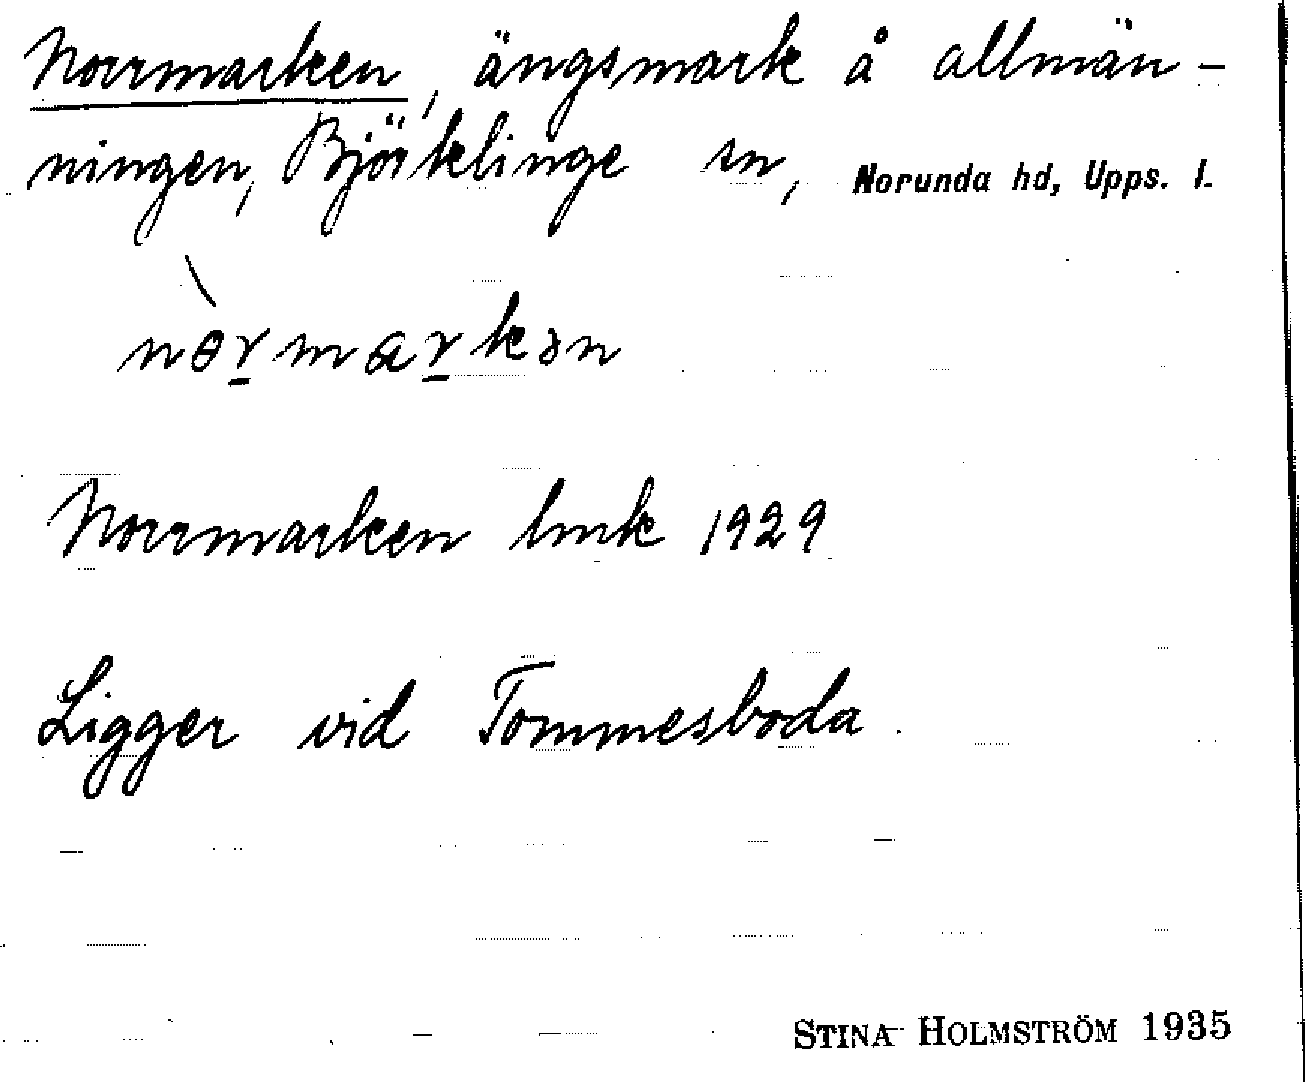 Norrmarken, ängsmark å allmän-
ningen, Björklinge sn, Norunda hd, Upps. l.
nɵ̀r̲mar̲kən
Norrmarken hmk 1929
Ligger vid Tommesboda.
STINA HOLMSTRÖM 1935